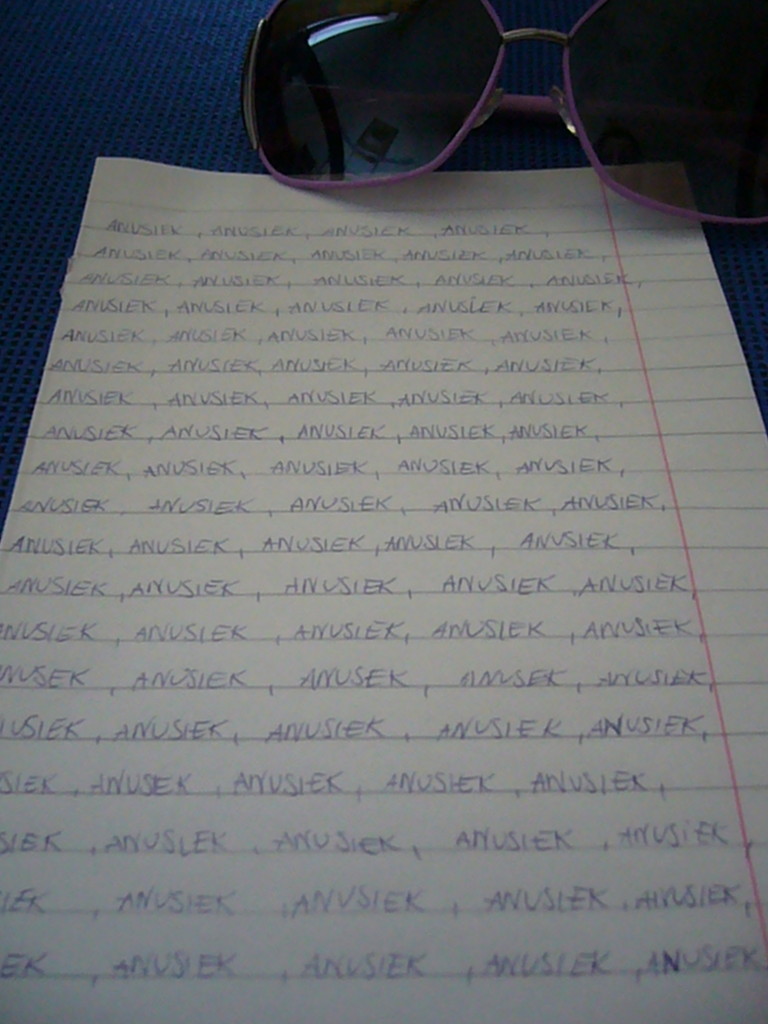 ANUSIEK, ANUSIEK, ANUSIEK, ANUSIEK,
ANUSIEK, ANUSIEK, ANUSIEK, ANUSIEK, ANUSIEK,
ANUSIEK, ANUSIEK, ANUSIEK, ANUSIEK, ANUSIEK,
ANUSIEK, ANUSIEK, ANUSIEK, ANUSIEK, ANUSIEK,
ANUSIEK, ANUSIEK, ANUSIEK, ANUSIEK, ANUSIEK,
ANUSIEK, ANUSIEK, ANUSIEK, ANUSIEK, ANUSIEK,
ANUSIEK, ANUSIEK, ANUSIEK, ANUSIEK, ANUSIEK,
ANUSIEK, ANUSIEK, ANUSIEK, ANUSIEK, ANUSIEK,
ANUSIEK, ANUSIEK, ANUSIEK, ANUSIEK, ANUSIEK,
ANUSIEK, ANUSIEK, ANUSIEK, ANUSIEK, ANUSIEK,
ANUSIEK, ANUSIEK, ANUSIEK, ANUSIEK, ANUSIEK,
ANUSIEK, ANUSIEK, ANUSIEK, ANUSIEK, ANUSIEK,
ANUSIEK, ANUSIEK, ANUSIEK, ANUSIEK, ANUSIEK,
NUSEK, ANUSIEK, ANUSEK, ANUSEK, ANUSIEK,
USIEK, ANUSIEK, ANUSIEK, ANUSIEK, ANUSIEK,
SIEK, ANUSEK, ANUSIEK, ANUSIEK, ANUSIEK,
SIEK, ANUSIEK, ANUSIEK, ANUSIEK, ANUSIEK,
IEK, ANUSIEK, ANUSIEK, ANUSIEK, ANUSIEK,
EK, ANUSIEK, ANUSIEK, ANUSIEK, ANUSIEK